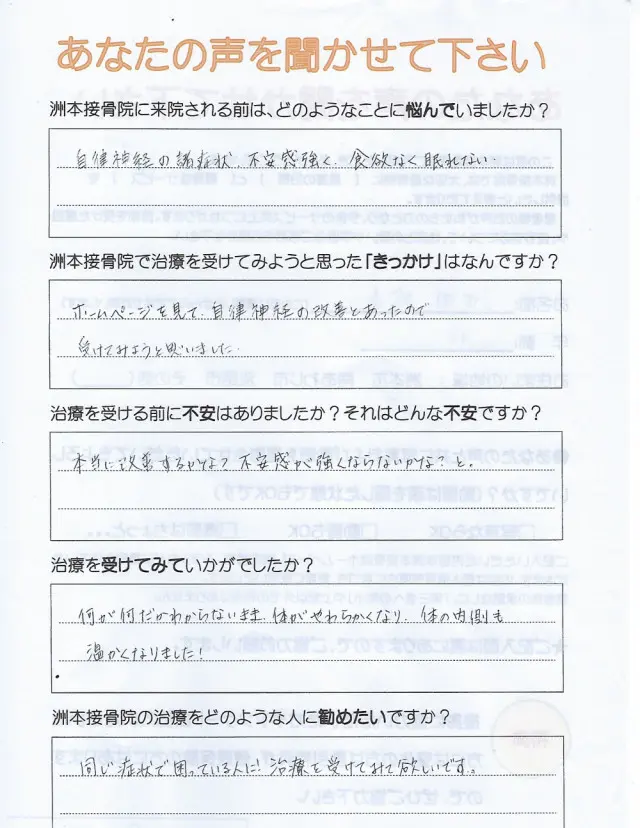 あなたの声を聞かせて下さい
洲本接骨院に来院される前は、どのようなことに悩んでいましたか？
自律神経の諸症状、不安感強く、食欲なく眠れない。
洲本接骨院で治療を受けてみようと思った「きっかけ」はなんですか？
ホームページを見て、自律神経の改善とあったので
受けてみようと思いました。
治療を受ける前に不安はありましたか？それはどんな不安ですか？
本当に改善するかな？不安感が強くならないかな？と。
治療を受けてみていかがでしたか？
何が何だかわからないまま、体がやわらかくなり、体の内側も
温かくなりました！
洲本接骨院の治療をどのような人に勧めたいですか？
同じ症状で困っている人に！治療を受けてみて欲しいです。